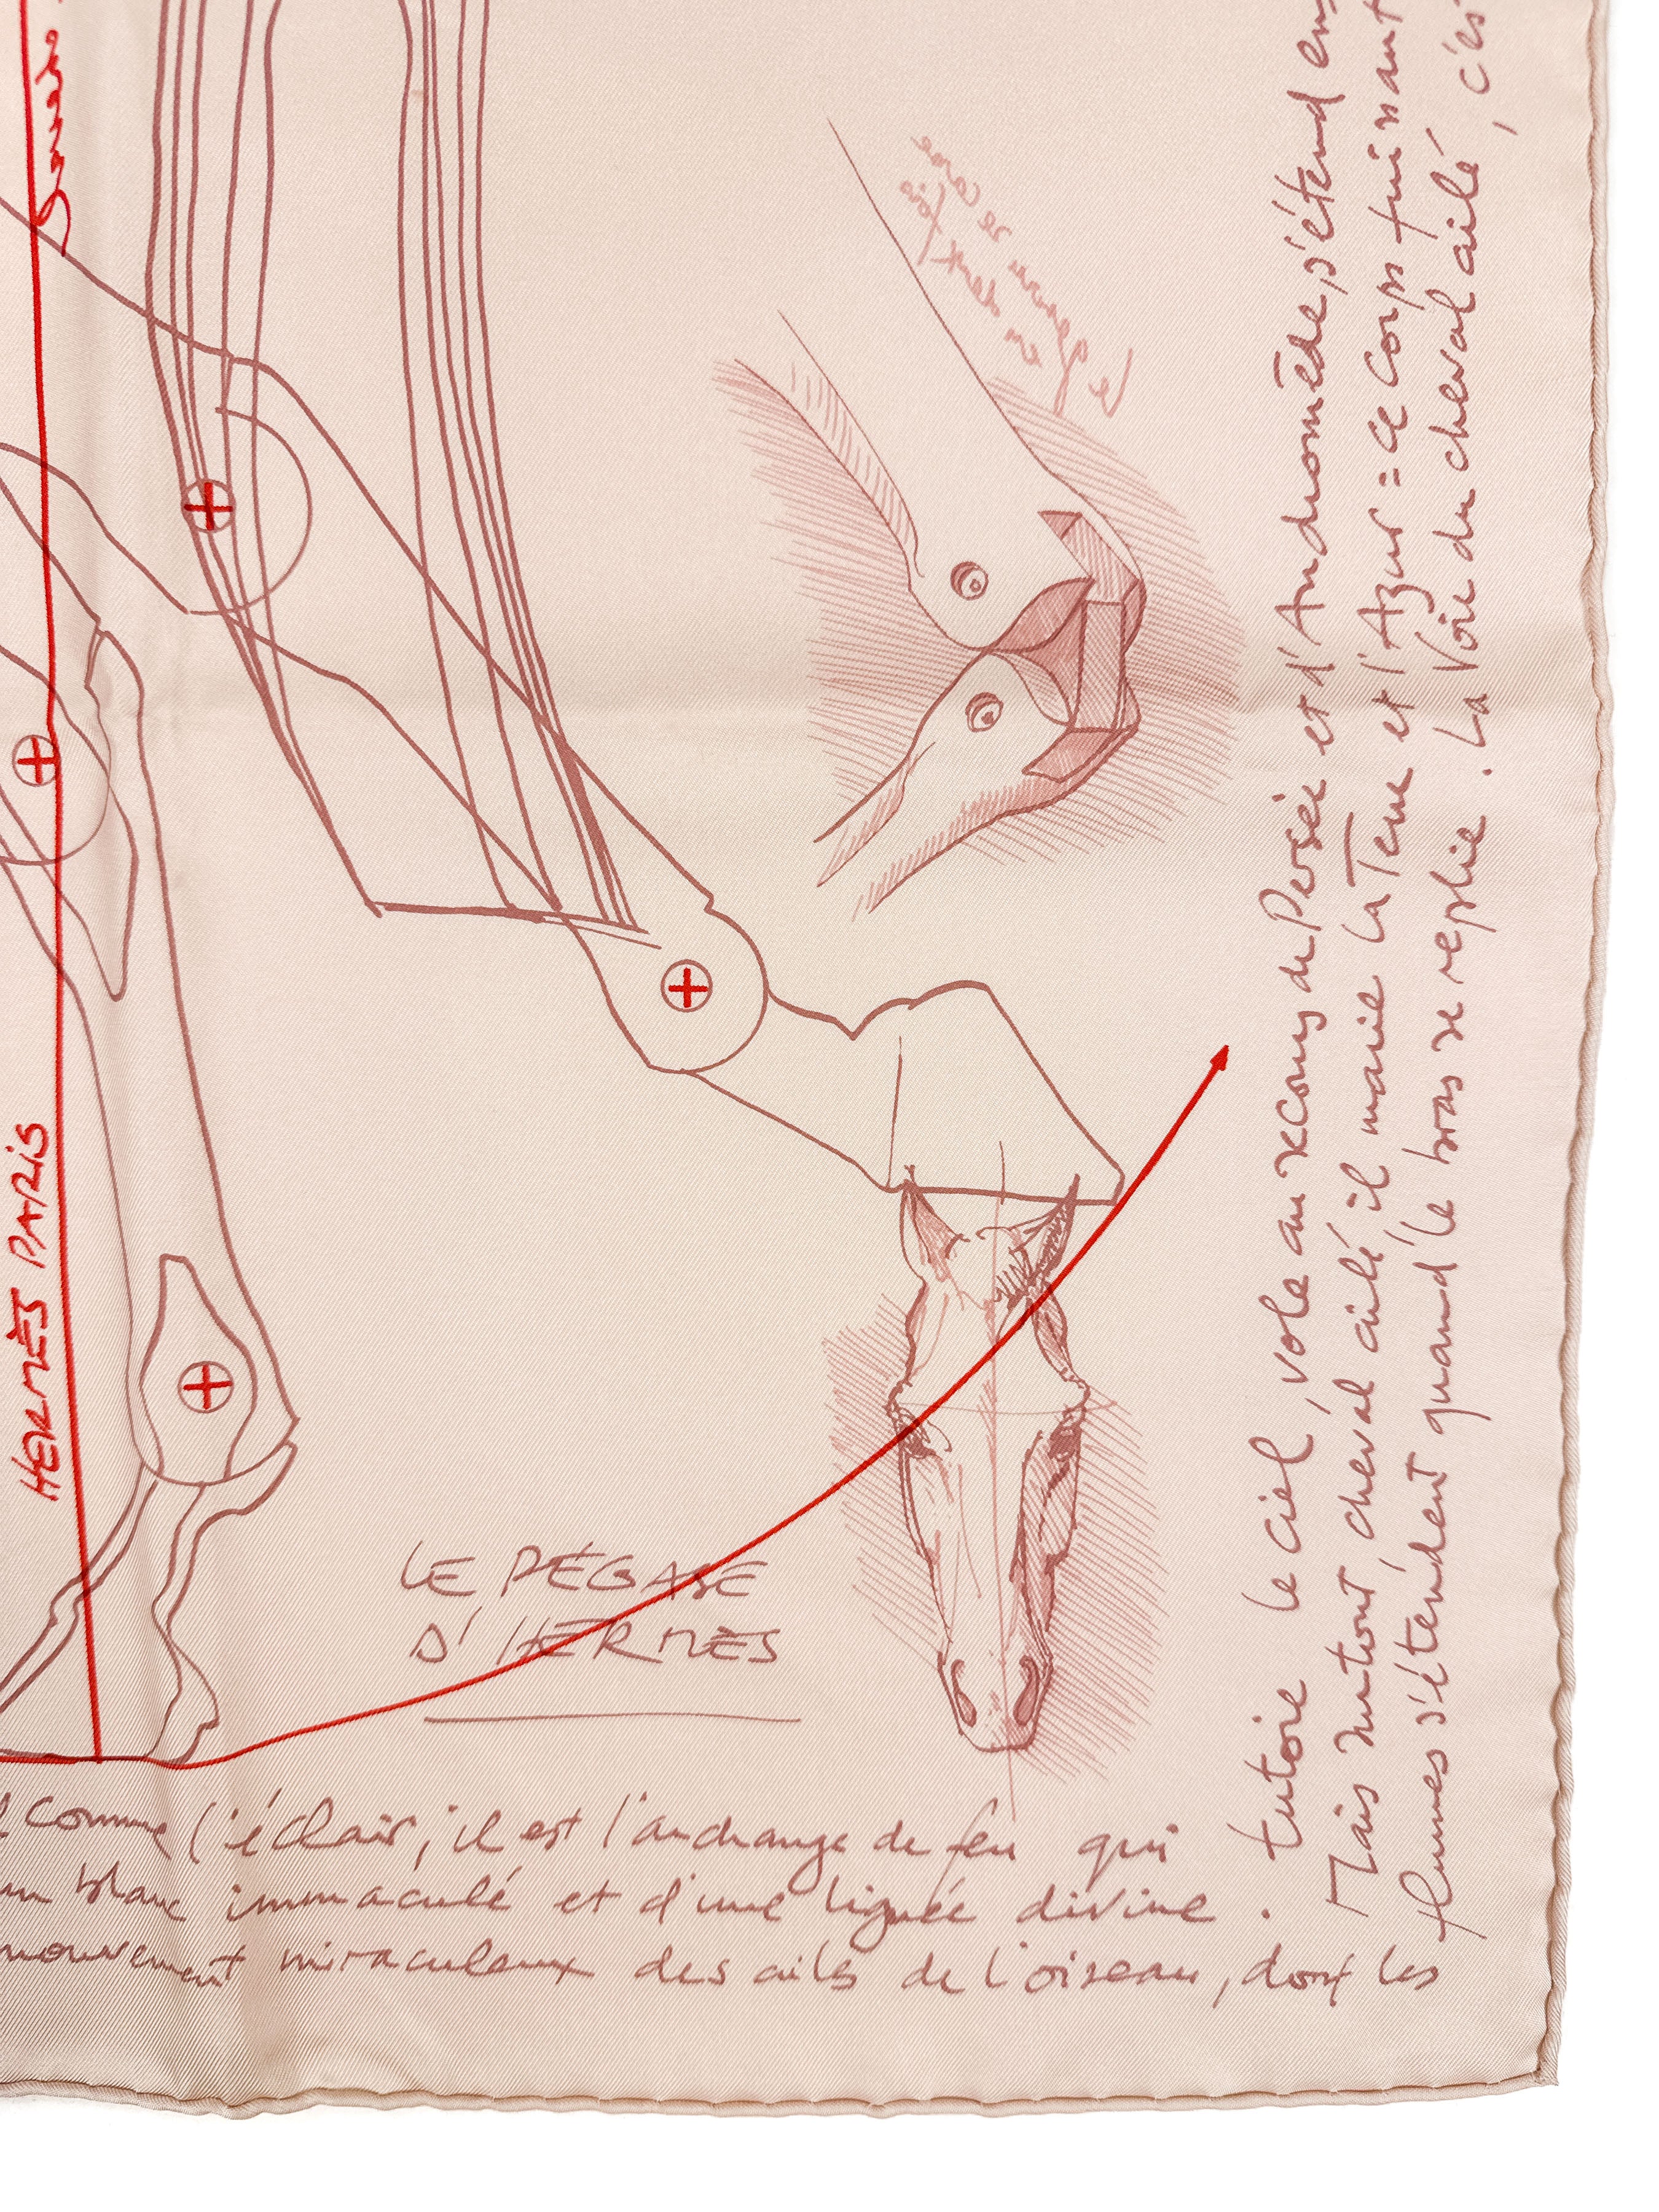 HERMÈS PARIS
LE PÉGASE
D'HERMÈS
comme l'éclair, il est l'archange de feu qui
un blanc immaculé et d'une lignée divine.
mouvement miraculeux des ailes de l'oiseau, dont les
tutoie le ciel, vole au secours de Persée et d'Andromède, s'étend
Mais surtout cheval ailé il marie la Terre et l'Azur = ce corps puissant
plumes s'étendent quand le bras se replie. La Voie du cheval ailé, c'est